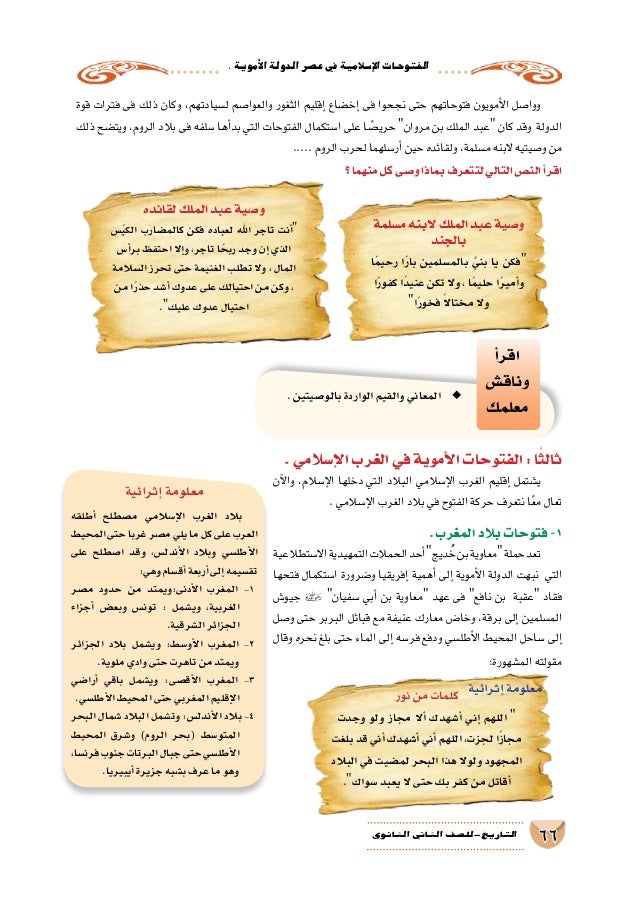 الفتوحات الإسلامية في عصر الدولة الأموية .
وواصل الأمويون فتوحاتهم حتى نجحوا فى إخضاع إقليم الثغور والعواصم لسيادتهم، وكان ذلك فى فترات قوة
الدولة وقد كان "عبد الملك بن مروان" حريصًا على استكمال الفتوحات التي بدأها سلفه فى بلاد الروم، ويتضح ذلك
من وصيتيه لابنه مسلمة، ولقائده حين أرسلهما لحرب الروم .....
اقرأ النص التالي لتتعرف بماذا وصى كل منهما ؟
وصية عبد الملك لابنه مسلمة
بالجند
"فكن يا بنيَّ بالمسلمين بارًا رحيمًا
وأميرًا حليمًا ، ولا تكن عنيدًا كفورًا
ولا مختالاً فخورًا"
وصية عبد الملك لقائده
"أنت تاجر الله لعباده فكن كالمضارب الكيِّس
الذي إن وجد ربحًا تاجر، وإلا احتفظ برأس
المال ، ولا تطلب الغنيمة حتى تحرز السلامة
، وكن من احتيالك على عدوك أشد حذرًا من
احتيال عدوك عليك".
اقرأ
وناقش
معلمك
◆ المعاني والقيم الواردة بالوصيتين .
ثالثًا : الفتوحات الأموية في الغرب الإسلامي .
يشتمل إقليم الغرب الإسلامي البلاد التي دخلها الإسلام، والآن
تعال معًا نتعرف حركة الفتوح في بلاد الغرب الإسلامي .
١- فتوحات بلاد المغرب .
تعد حملة "معاوية بن خُديج" أحد الحملات التمهيدية الاستطلاعية
التي نبهت الدولة الأموية إلى أهمية إفريقيا وضرورة استكمال فتحها
فقاد "عقبة بن نافع" فى عهد "معاوية بن أبي سفيان" ﷺ جيوش
المسلمين إلى برقة، وخاض معارك عنيفة مع قبائل البربر حتى وصل
إلى ساحل المحيط الأطلسي ودفع فرسه إلى الماء حتى بلغ نحره وقال
مقولته المشهورة:
معلومة إثرائية
كلمات من نور
" اللهم إني أشهدك ألا مجاز ولو وجدت
مجازًا لجزت، اللهم أني أشهدك أني قد بلغت
المجهود ولولا هذا البحر لمضيت في البلاد
أقاتل من كفر بك حتى لا يعبد سواك".
معلومة إثرائية
بلاد الغرب الإسلامي مصطلح أطلقه
العرب على كل ما يلي مصر غربا حتى المحيط
الأطلسي وبلاد الأندلس، وقد اصطلح على
تقسيمه إلى أربعة أقسام وهي:
١- المغرب الأدنى:ويمتد من حدود مصر
الغربية، ويشمل : تونس وبعض أجزاء
الجزائر الشرقية.
٢- المغرب الأوسط: ويشمل بلاد الجزائر
ويمتد من تاهرت حتى وادي ملوية.
٣- المغرب الأقصى: ويشمل باقي أراضي
الإقليم المغربي حتى المحيط الأطلسي.
٤- بلاد الأندلس: وتشمل البلاد شمال البحر
المتوسط (بحر الروم) وشرق المحيط
الأطلسي حتى جبال البرتات جنوب فرنسا،
وهو ما عرف بشبه جزيرة أيبيريا.
٦٦
التاريخ - للصف الثاني الثانوى